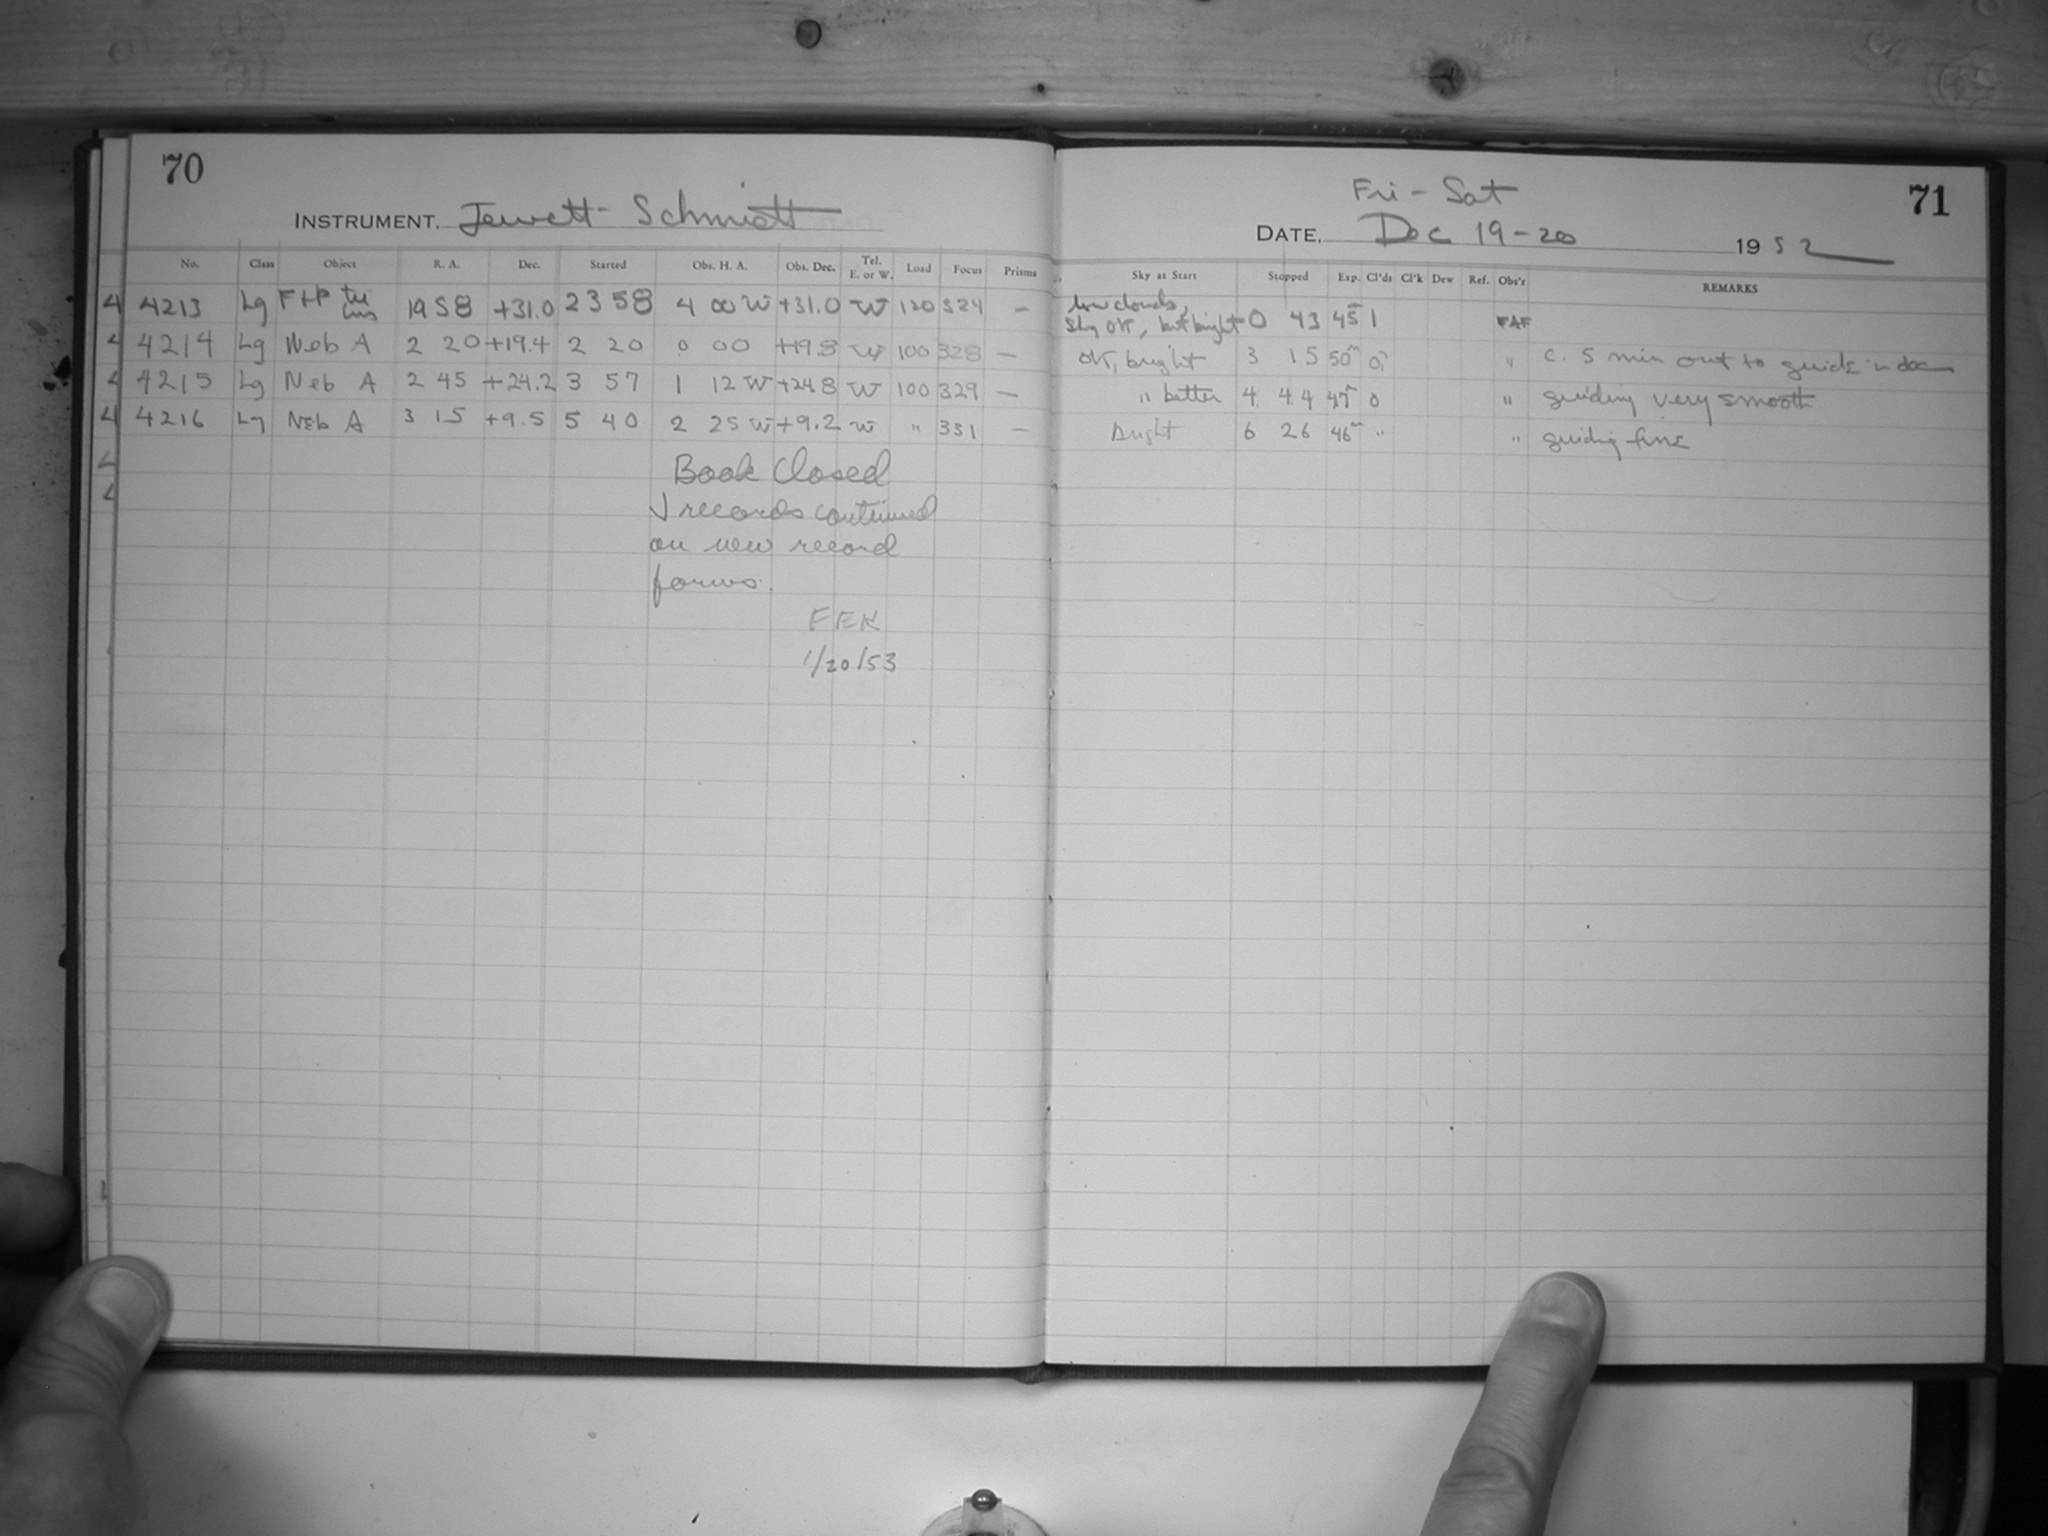 70
INSTRUMENT, Jewett-Schmidt
No. Class Object R. A. Dec. Started Obs. H. A. Obs. Dec. Tel. E. or W. Load Focus Prisms
4213 Lg 19 58 +31.0 23 58 4 00 W +31.0 W 120 324 —
4214 Lg Neb A 2 20 +19.4 2 20 0 00 +19.8 W 100 328 —
4215 Lg Neb A 2 45 +24.2 3 57 1 12 W +24.8 W 100 329 —
4216 Lg Neb A 3 15 +9.5 5 40 2 25 W +9.2 W " 331 —
Book Closed
records continued
on new record
forms.
FEK
1/20/53
71
Fri - Sat
DATE, Dec 19-20 1952
Sky at Start Stopped Exp. Cl'ds Cl'k Dew Ref. Obs'r REMARKS
low clouds,
sky OK, but bright 0 43 45m 1 FAF
OK, bright 3 15 50m 0 " c. 5 min out to guide in dec
" better 4 44 47m 0 " guiding very smooth
bright 6 26 46m " " guiding fine